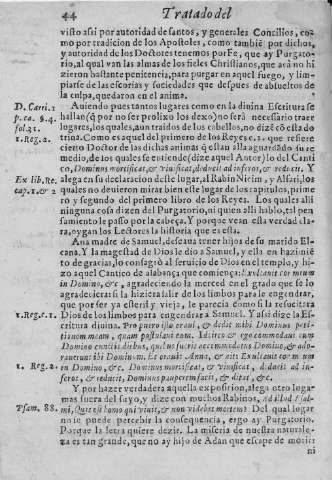 44 Tratado del
visto assi por autoridad de santos, y generales Concilios, co-
mo por tradicion de los Apostoles, como tambiē por dichos,
y autoridad de los Doctores tenemos por Fe, que ay Purgato-
rio, al qual van las almas de los fieles Christianos, que acà no hi
zieron bastante penitencia, para purgar en aquel fuego, y lim-
piarse de las escorias y suciedades que despues de absueltos de
la culpa, quedaron en el anima.
D. Carri. 1
p. ca. 8. q.
fol. 31.
1. Reg. 2.
Auiendo pues tantos lugares como en la diuina Escritura se
hallan (q̃ por no ser prolixo los dexo) no serà necessario traer
lugares, los quales, aun traidos de los cabellos, no dizē ò esta do
trina. Como es aquel del primero de los Reyes c. 2. que refiere
cierto Doctor de las dichas animas q̃ estàn alla aguardādo su re
medio, de los quales se entiende (dize aquel Autor) lo del Canti
co, Dominus mortificat, & viuificat, deducit ad inferos, & reducit. Y
Ex lib. Re.
cap. 1. & 2
alega en su declaracion deste lugar, al Rabin Nicim, y Alfasi, los
quales no deuieron mirar bien este lugar de los capitulos, prime
ro y segundo del primero libro de los Reyes. Los quales alli
ninguna cosa dizen del Purgatorio, ni quien alli hablò, tal pen
samiento le passo por la cabeça. Y porque vean esta verdad cla-
ra, oygan los Lectores la historia que es esta.
Ana madre de Samuel, deseaua tener hijos de su marido El-
cana. Y la magestad de Dios le dio a Samuel, y ella en hazimiē
to de gracias, lo consagrò al seruicio de Dios en el templo, y hi-
zo aquel Cantico de alabança que comiença: Exultauit cor meum
in Domino, &c. agradeciendo la merced en el grado que se lo
agradecieras si la hiziera salir de los limbos para le engendrar,
que por ser ya esteril y vieja, le parecia como si la resucitara
1. Reg. c. 1.
Dios de los limbos para engendrar a Samuel. Y assi dize la Es-
critura diuina. Pro puero isto oraui, & dedit mihi Dominus peti-
tionem meam, quam postulaui eum. Idcirco & ego commodaui eum
Domino cunctis diebus, quibus fuerit accommodatus Domino, & ado-
rauerunt ibi Dominum. Et orauit Anna, & ait: Exultauit cor meum
1. Reg. 2.
in Domino, &c. Dominus mortificat, & viuificat, deducit ad in-
feros, & reducit, Dominus pauperem facit, & ditat, &c.
Y por hazer verdadera aquella exposicion, alega otro lugar
Psam. 88.
mas fuera del suyo, y dize con muchos Rabinos, Ad illud Psal-
mi, Quis est homo qui viuit, & non videbit mortem? Del qual lugar
no se puede percibir la consequencia, ergo ay Purgatorio.
Porque la letra quiere dezir. La miseria de nuestra naturale-
za es tan grande, que no ay hijo de Adan que escape de morir:
ni